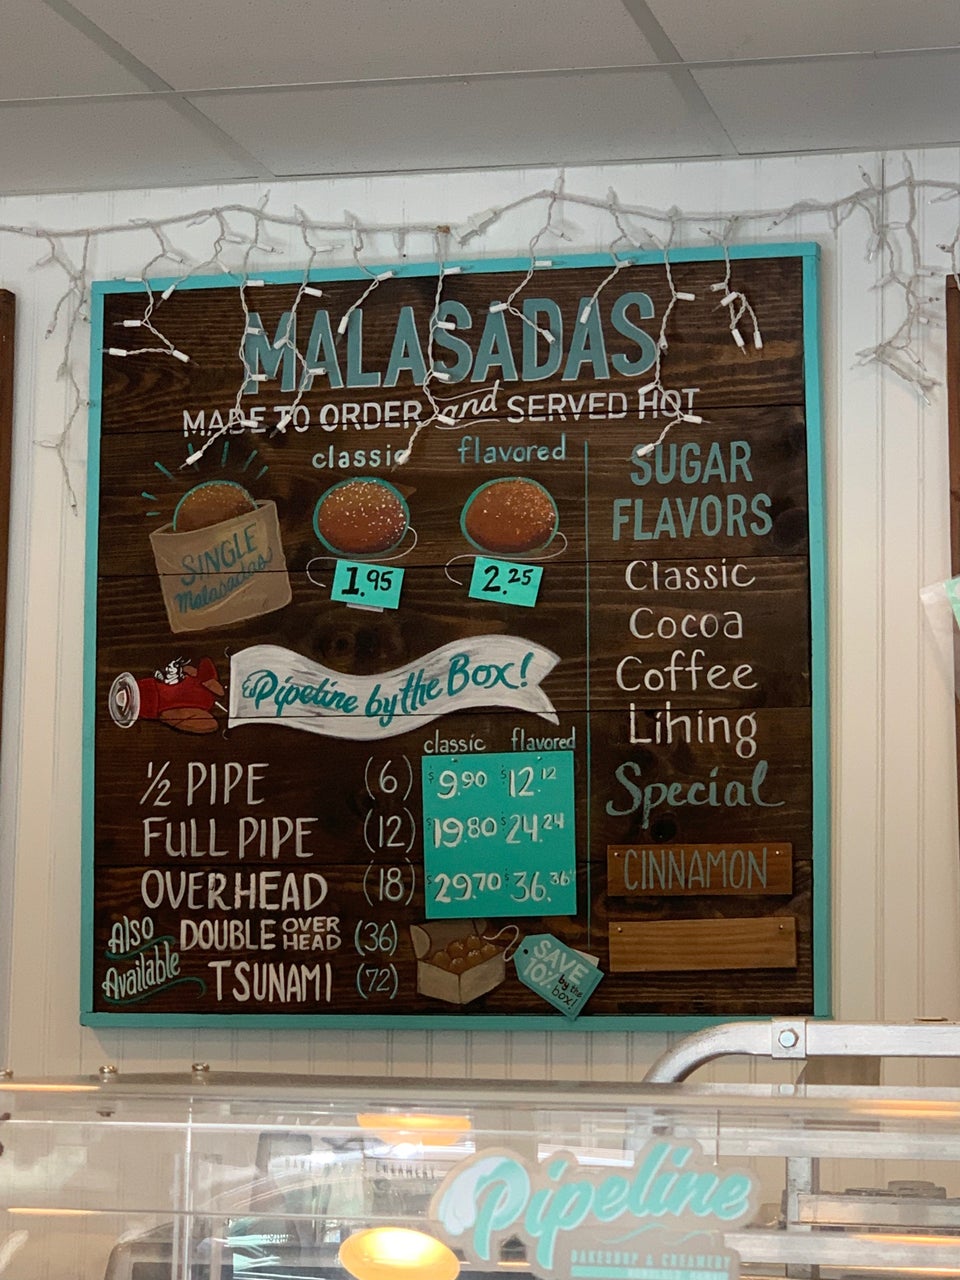 MALASADAS
MADE TO ORDER and SERVED HOT
classic flavored
SINGLE
Malasadas
1.95 2.25
Pipeline by the Box!
classic flavored
½ PIPE (6) $9.90 $12.12
FULL PIPE (12) $19.80 $24.24
OVERHEAD (18) $29.70 $36.36
Also
Available
DOUBLE OVER HEAD (36)
TSUNAMI (72)
SAVE
10%
by the
box!
SUGAR
FLAVORS
Classic
Cocoa
Coffee
Lihing
Special
CINNAMON
Pipeline
BAKESHOP & CREAMERY